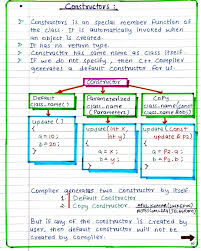 Constructors :
Constructors is an special member function of
the class. It is automatically invoked when
an object is created.
It has no return type.
Constructor has same name as class itself.
If we do not specify, then C++ compiler
generates a default constructor for us.
Constructor
Default
class_name()
Parameterized
class_name
(Parameters)
Copy
class_name(const
class_name &obj)
update()
{
a = 10;
b = 20;
}
update(int x,
int y)
{
a = x;
b = y;
}
update(const
update & p2)
{
a = p2.a;
b = p2.b;
}
Compiler generates two constructor by itself.
1. Default Constructor
2. Copy Constructor
But if any of the constructor is created by
user, then default constructor will not be
created by compiler.